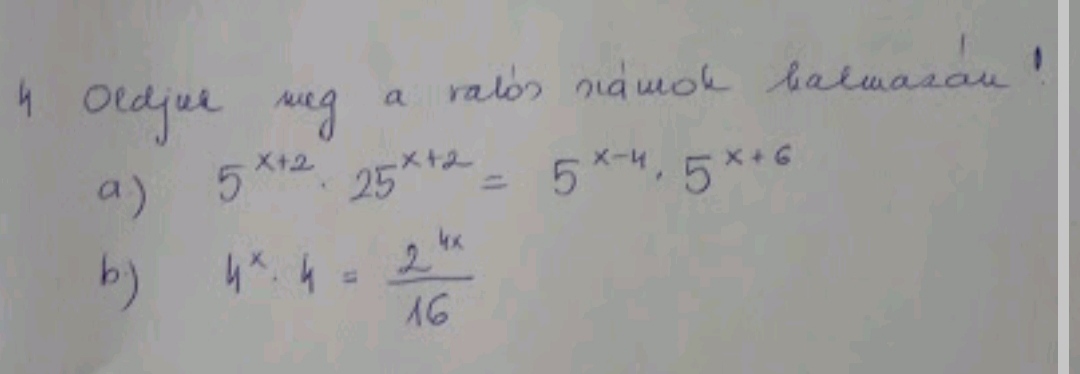 4 Oldjuk meg a valós számok halmazán!
a) 5^{x+2} · 25^{x+2} = 5^{x-4} · 5^{x+6}
b) 4^x · 4 = \frac{2^{4x}}{16}